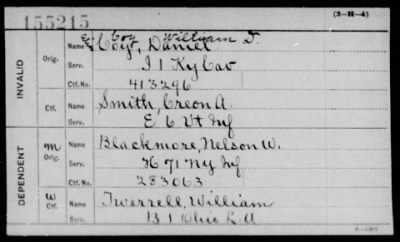 155215
(3-H-4)
Coy William D.
INVALID
Orig.
Name Coy, Daniel
Serv. I 1 Ky Cav
Ctf. No. 413296
Ctf.
Name Smith, Creon A.
Serv. E 6 Vt Inf
DEPENDENT
M
Orig.
Name Blackmore, Nelson W.
Serv. K 71 Ny Inf
Ctf. No. 283063
W
Ctf.
Name Twerrell, William
Serv. B 1 Ohio L.A